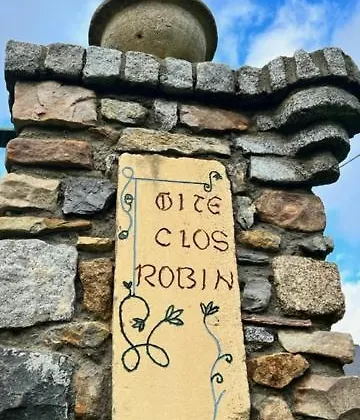 GITE
CLOS
ROBIN